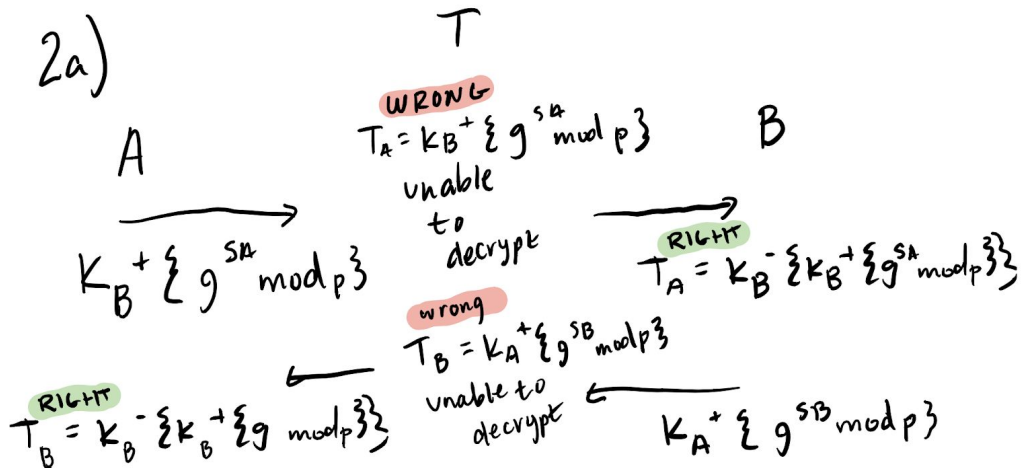 2a)
T
WRONG
T_A = K_B^+ { g^{SA} mod p }
unable
to
decrypt
A
B
K_B^+ { g^{SA} mod p }
RIGHT
T_A = K_B^- {K_B^+ {g^{SA} mod p}}
wrong
T_B = K_A^+ {g^{SB} mod p}
unable to
decrypt
RIGHT
T_B = K_B^- {K_B^+ {g mod p}}
K_A^+ { g^{SB} mod p }